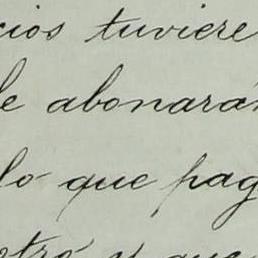 cios tuviere
le abonarán
lo que pag
otro y que